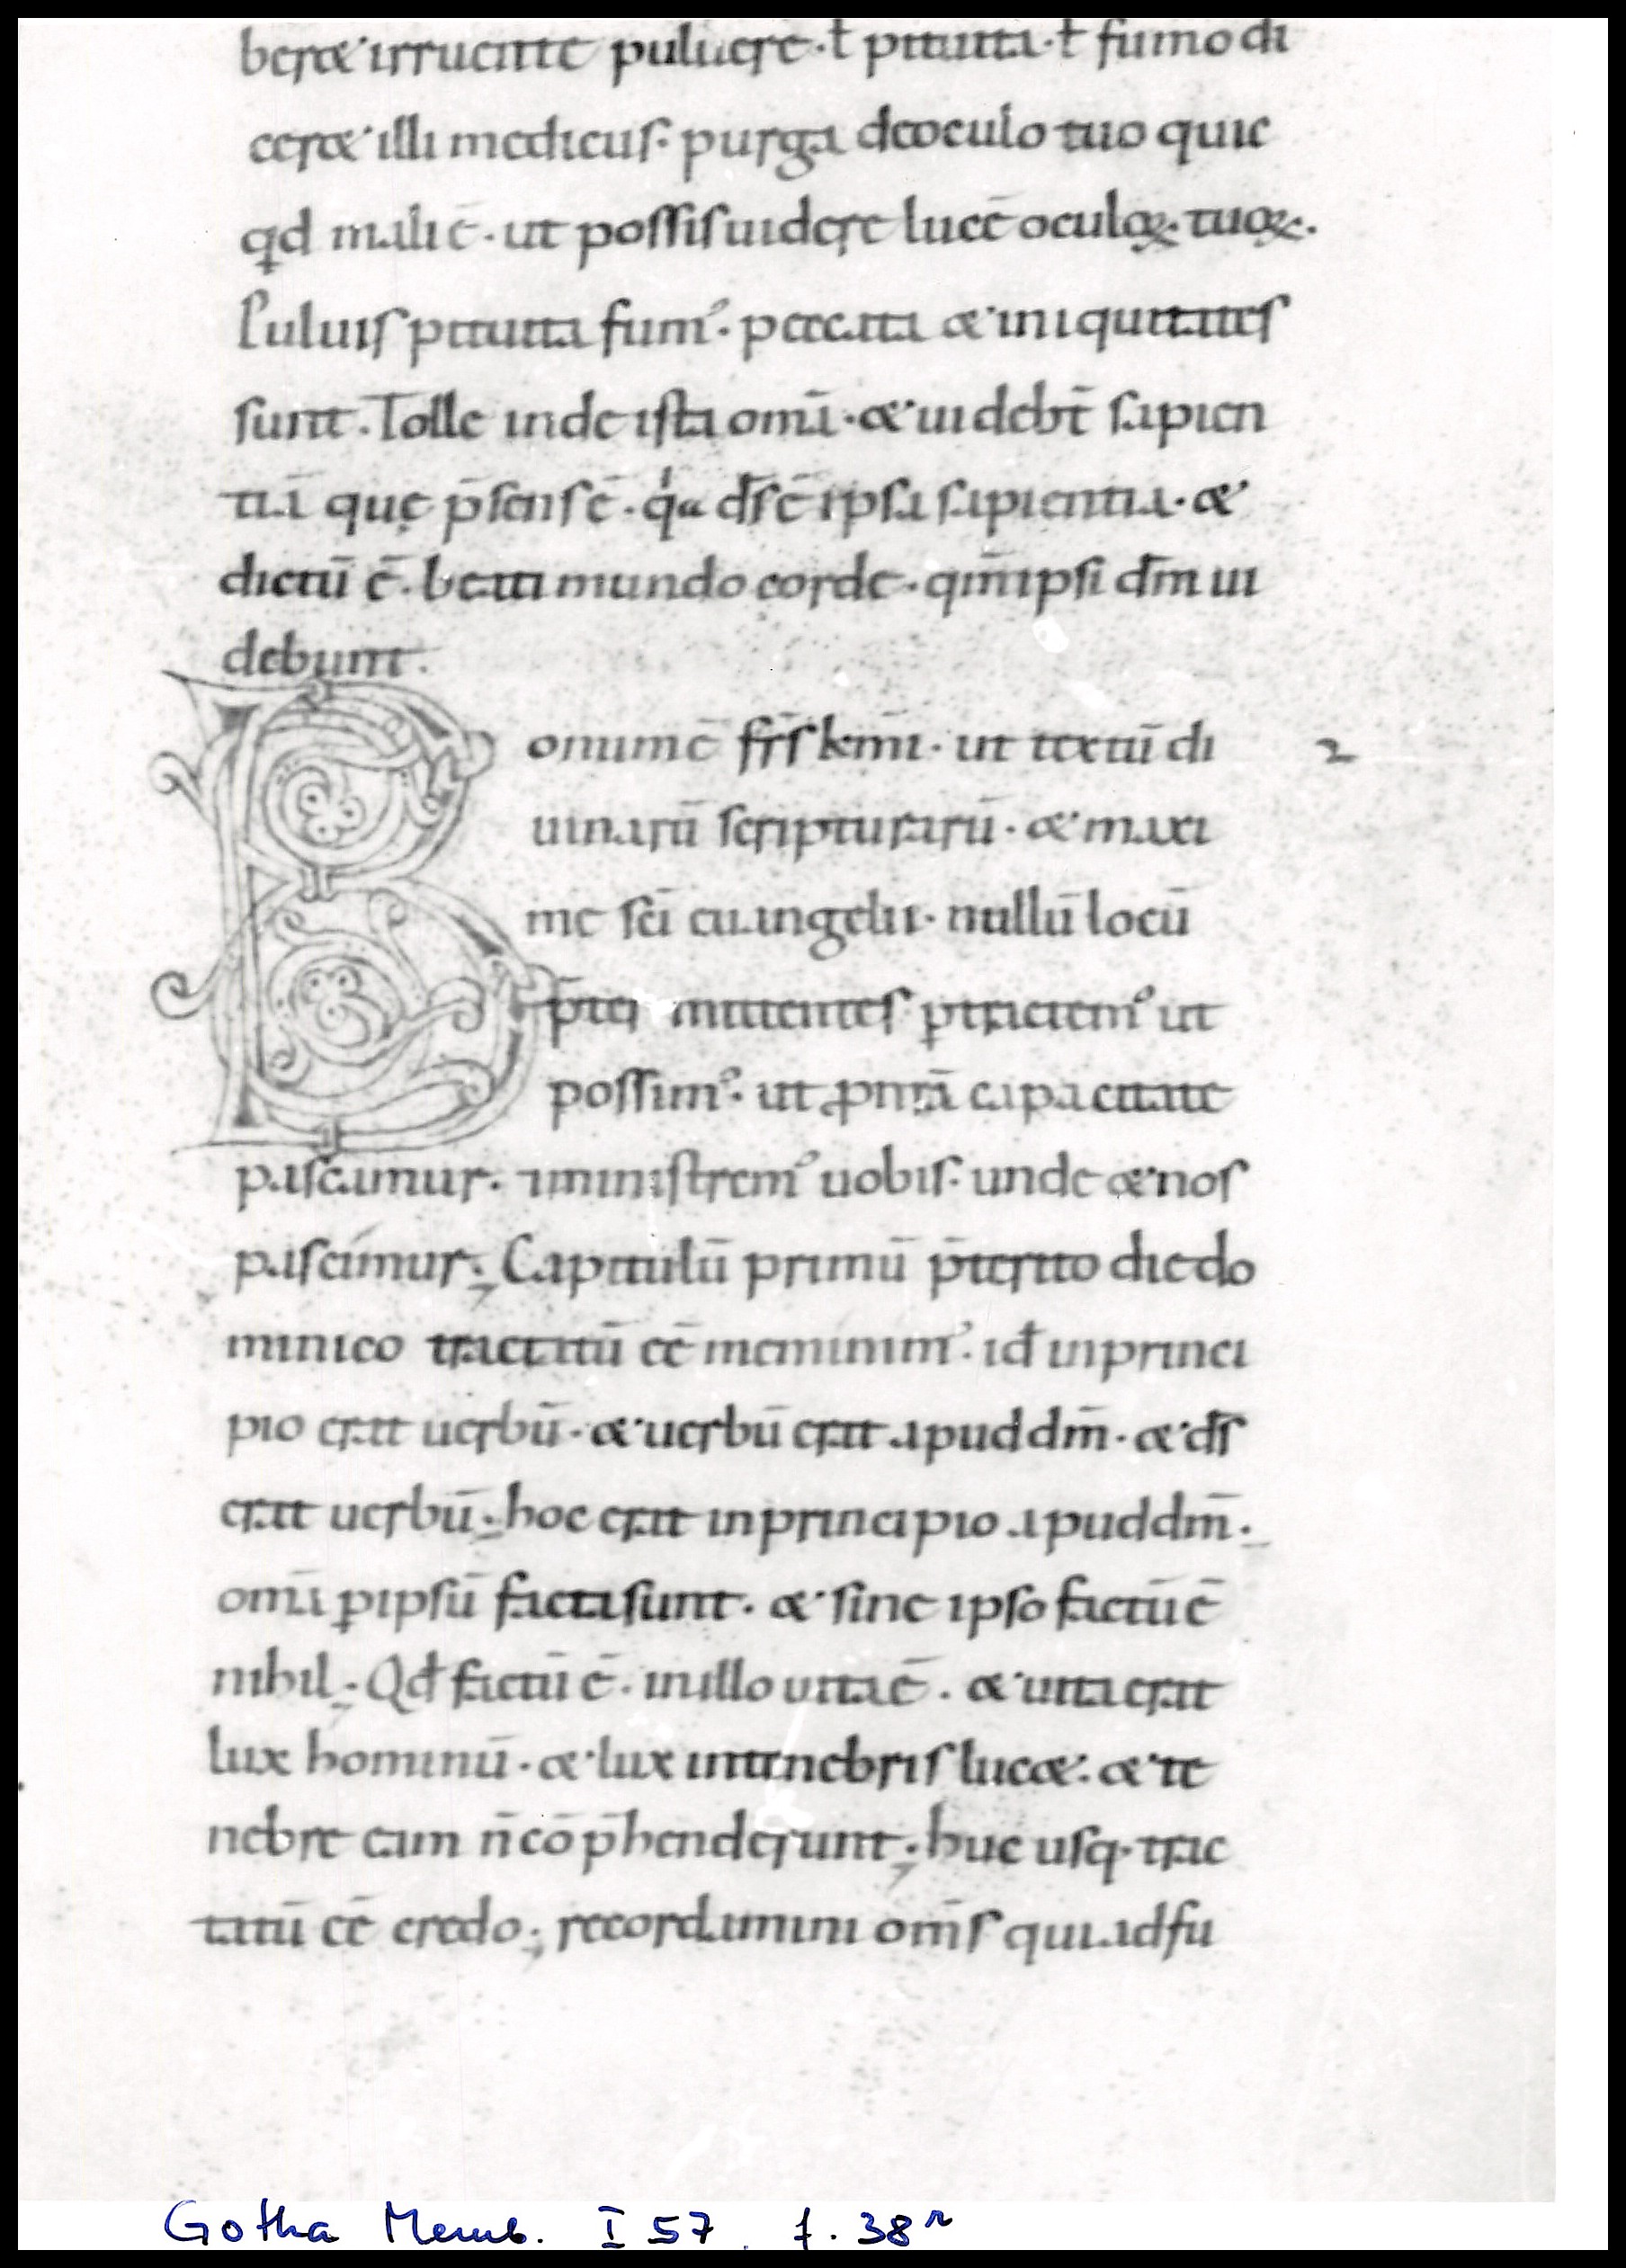 ber&irruente puluere·ƚ pituita·ƚ fumo di
cer& illi medicus· purga deoculo tuo quic
qd mali ē· ut possisuidere lucē oculoꝝ· tuoꝝ·
Puluis pituita fumꝰ· peccata & iniquitates
sunt. Tolle inde ista om̄a·& uidebt̄ sapien
tiā quę p̄sens ē· qͥa d̄s ē ipsa sapientia·&
dictū ē· beati mundo corde· qm̄ipsi dm̄ ui
debunt·
Bonumē fr̄s km̄i· ut textū di
uinarū scripturarū· & maxi
me sc̄i euangelii· nullū locū
p̄ter mittentes ꝑtractemꝰ ut
possimꝰ· ut ꝓnrā capacitate
pascamur· ⁊ministremꝰ uobis· unde &nos
pascimur; Capitulū primū p̄terito diedo
minico tractatū eē meminimꝰ· id̄ inprinci
pio erat uerbū·&uerbū erat apuddm̄·&ds̄
erat uerbū; hoc erat inprincipio apuddm̄·
om̄a ꝑipsū factasunt· & sine ipso factū ē
nihil; Qd̄ factū ē· inillo uita ē· & uita erat
lux hominū·&lux intenebris luc&·&te
nebre eam n̄ cōp̄henderunt; huc usq· trac
tatū eē credo; recordamini om̄s qui adfu
2
Gotha Memb. I 57. f. 38r